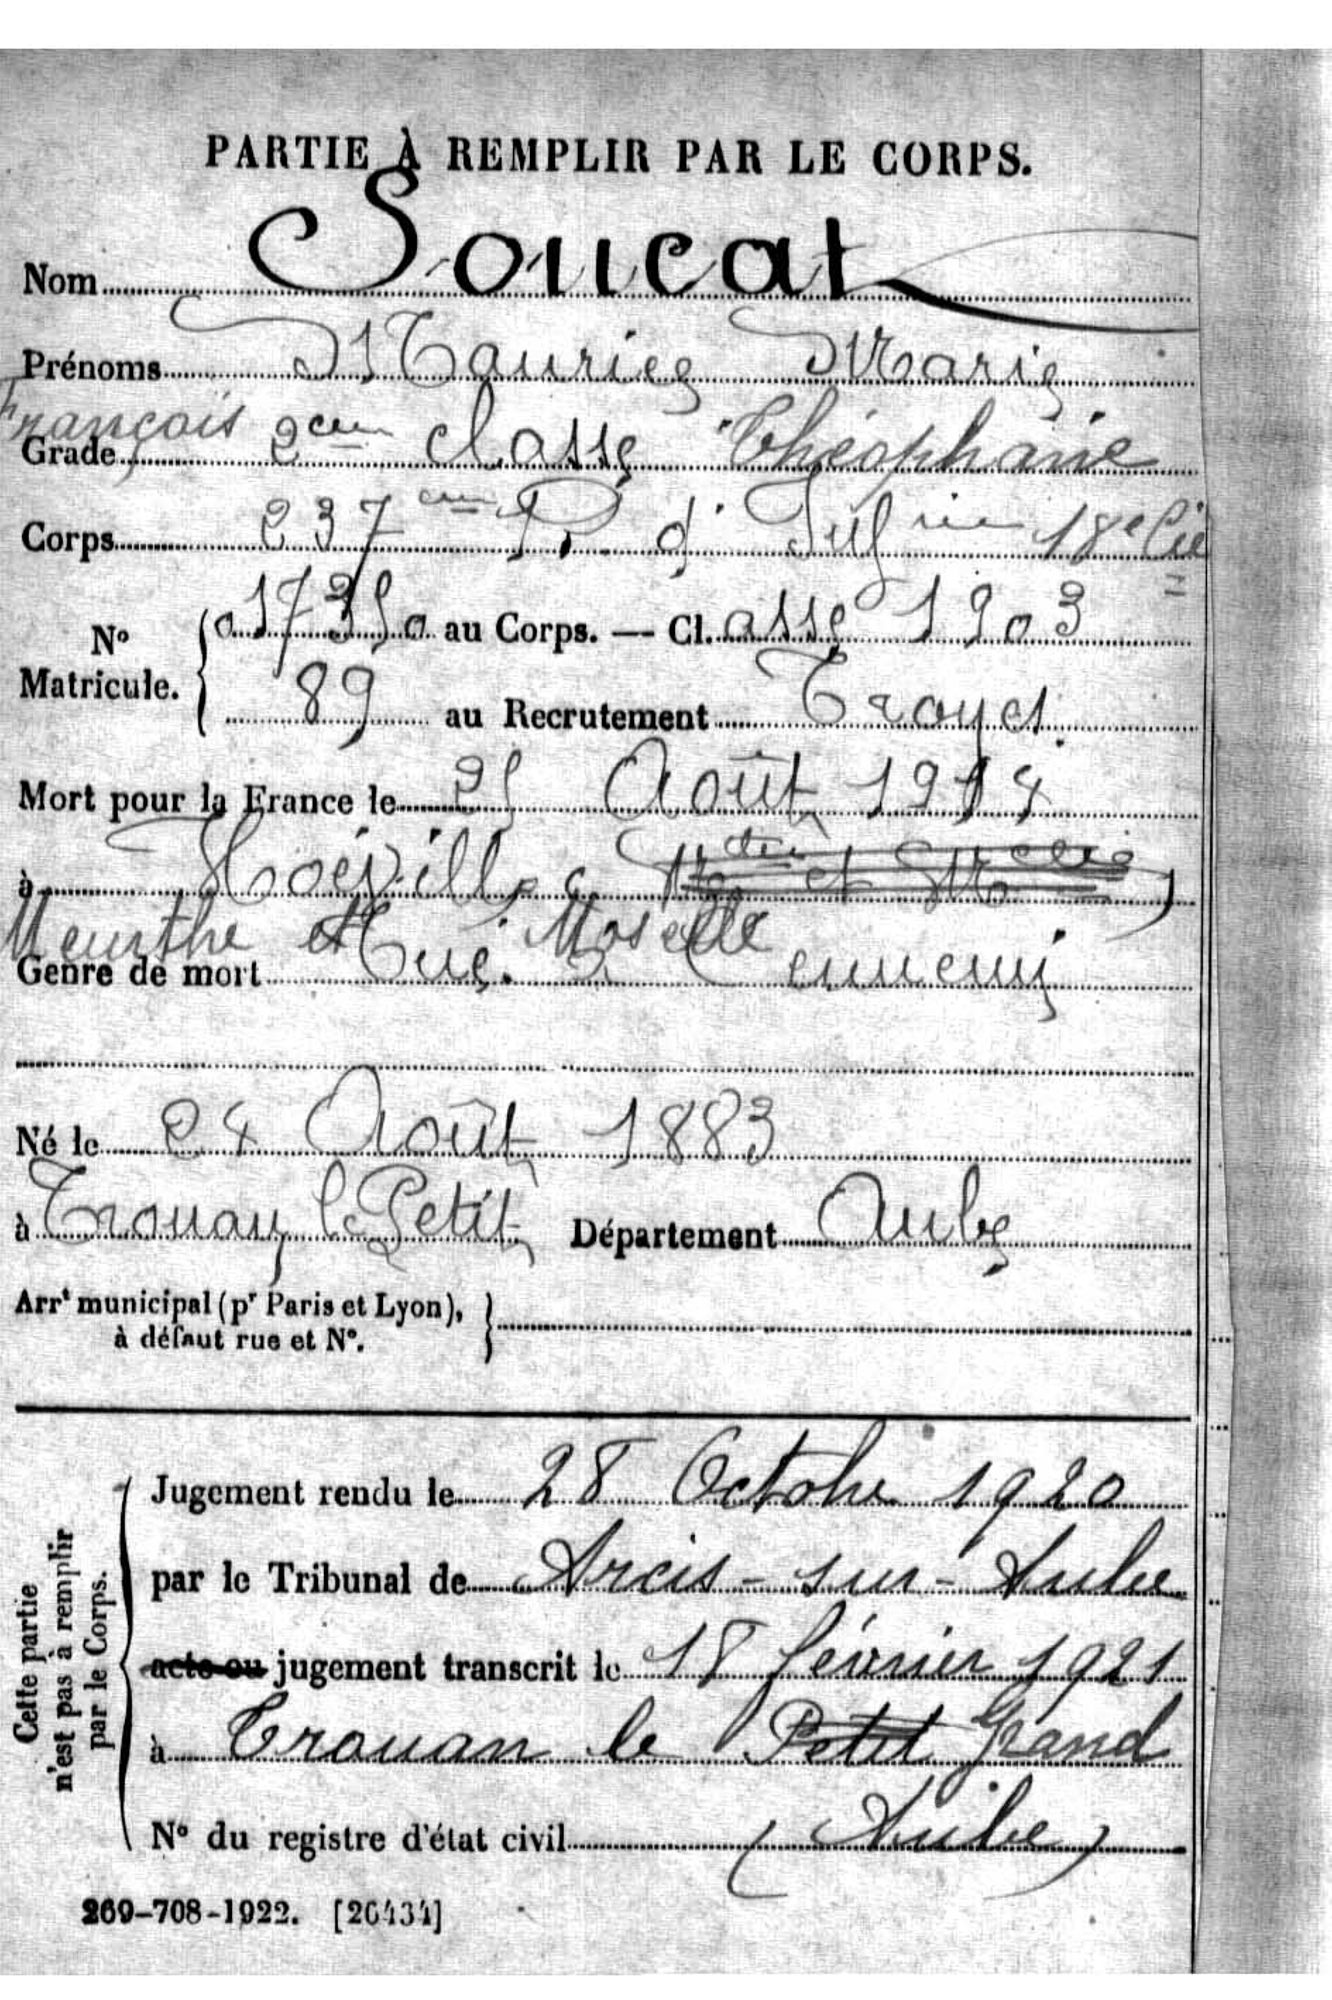 PARTIE À REMPLIR PAR LE CORPS.
Nom Soucat
Prénoms Maurice Marie
François Théophanie
Grade 2eme classe
Corps 237eme R. d'Infrie 18e Cie
N° Matricule. 017350 au Corps. — Cl. asse 1903
89 au Recrutement Troyes
Mort pour la France le 25 Août 1914
à Hoéville (Mthe et Mlle)
Meurthe et Moselle
Genre de mort Tué à l'ennemi
Né le 24 Août 1883
à Trouan le Petit Département Aube
Arrt municipal (pr Paris et Lyon),
à défaut rue et N°.
Cette partie
n'est pas à remplir
par le Corps.
Jugement rendu le 28 Octobre 1920
par le Tribunal de Arcis-sur-Aube
acte ou jugement transcrit le 18 février 1921
à Trouan le Petit Grand
N° du registre d'état civil (Aube)
269-708-1922. [26434]